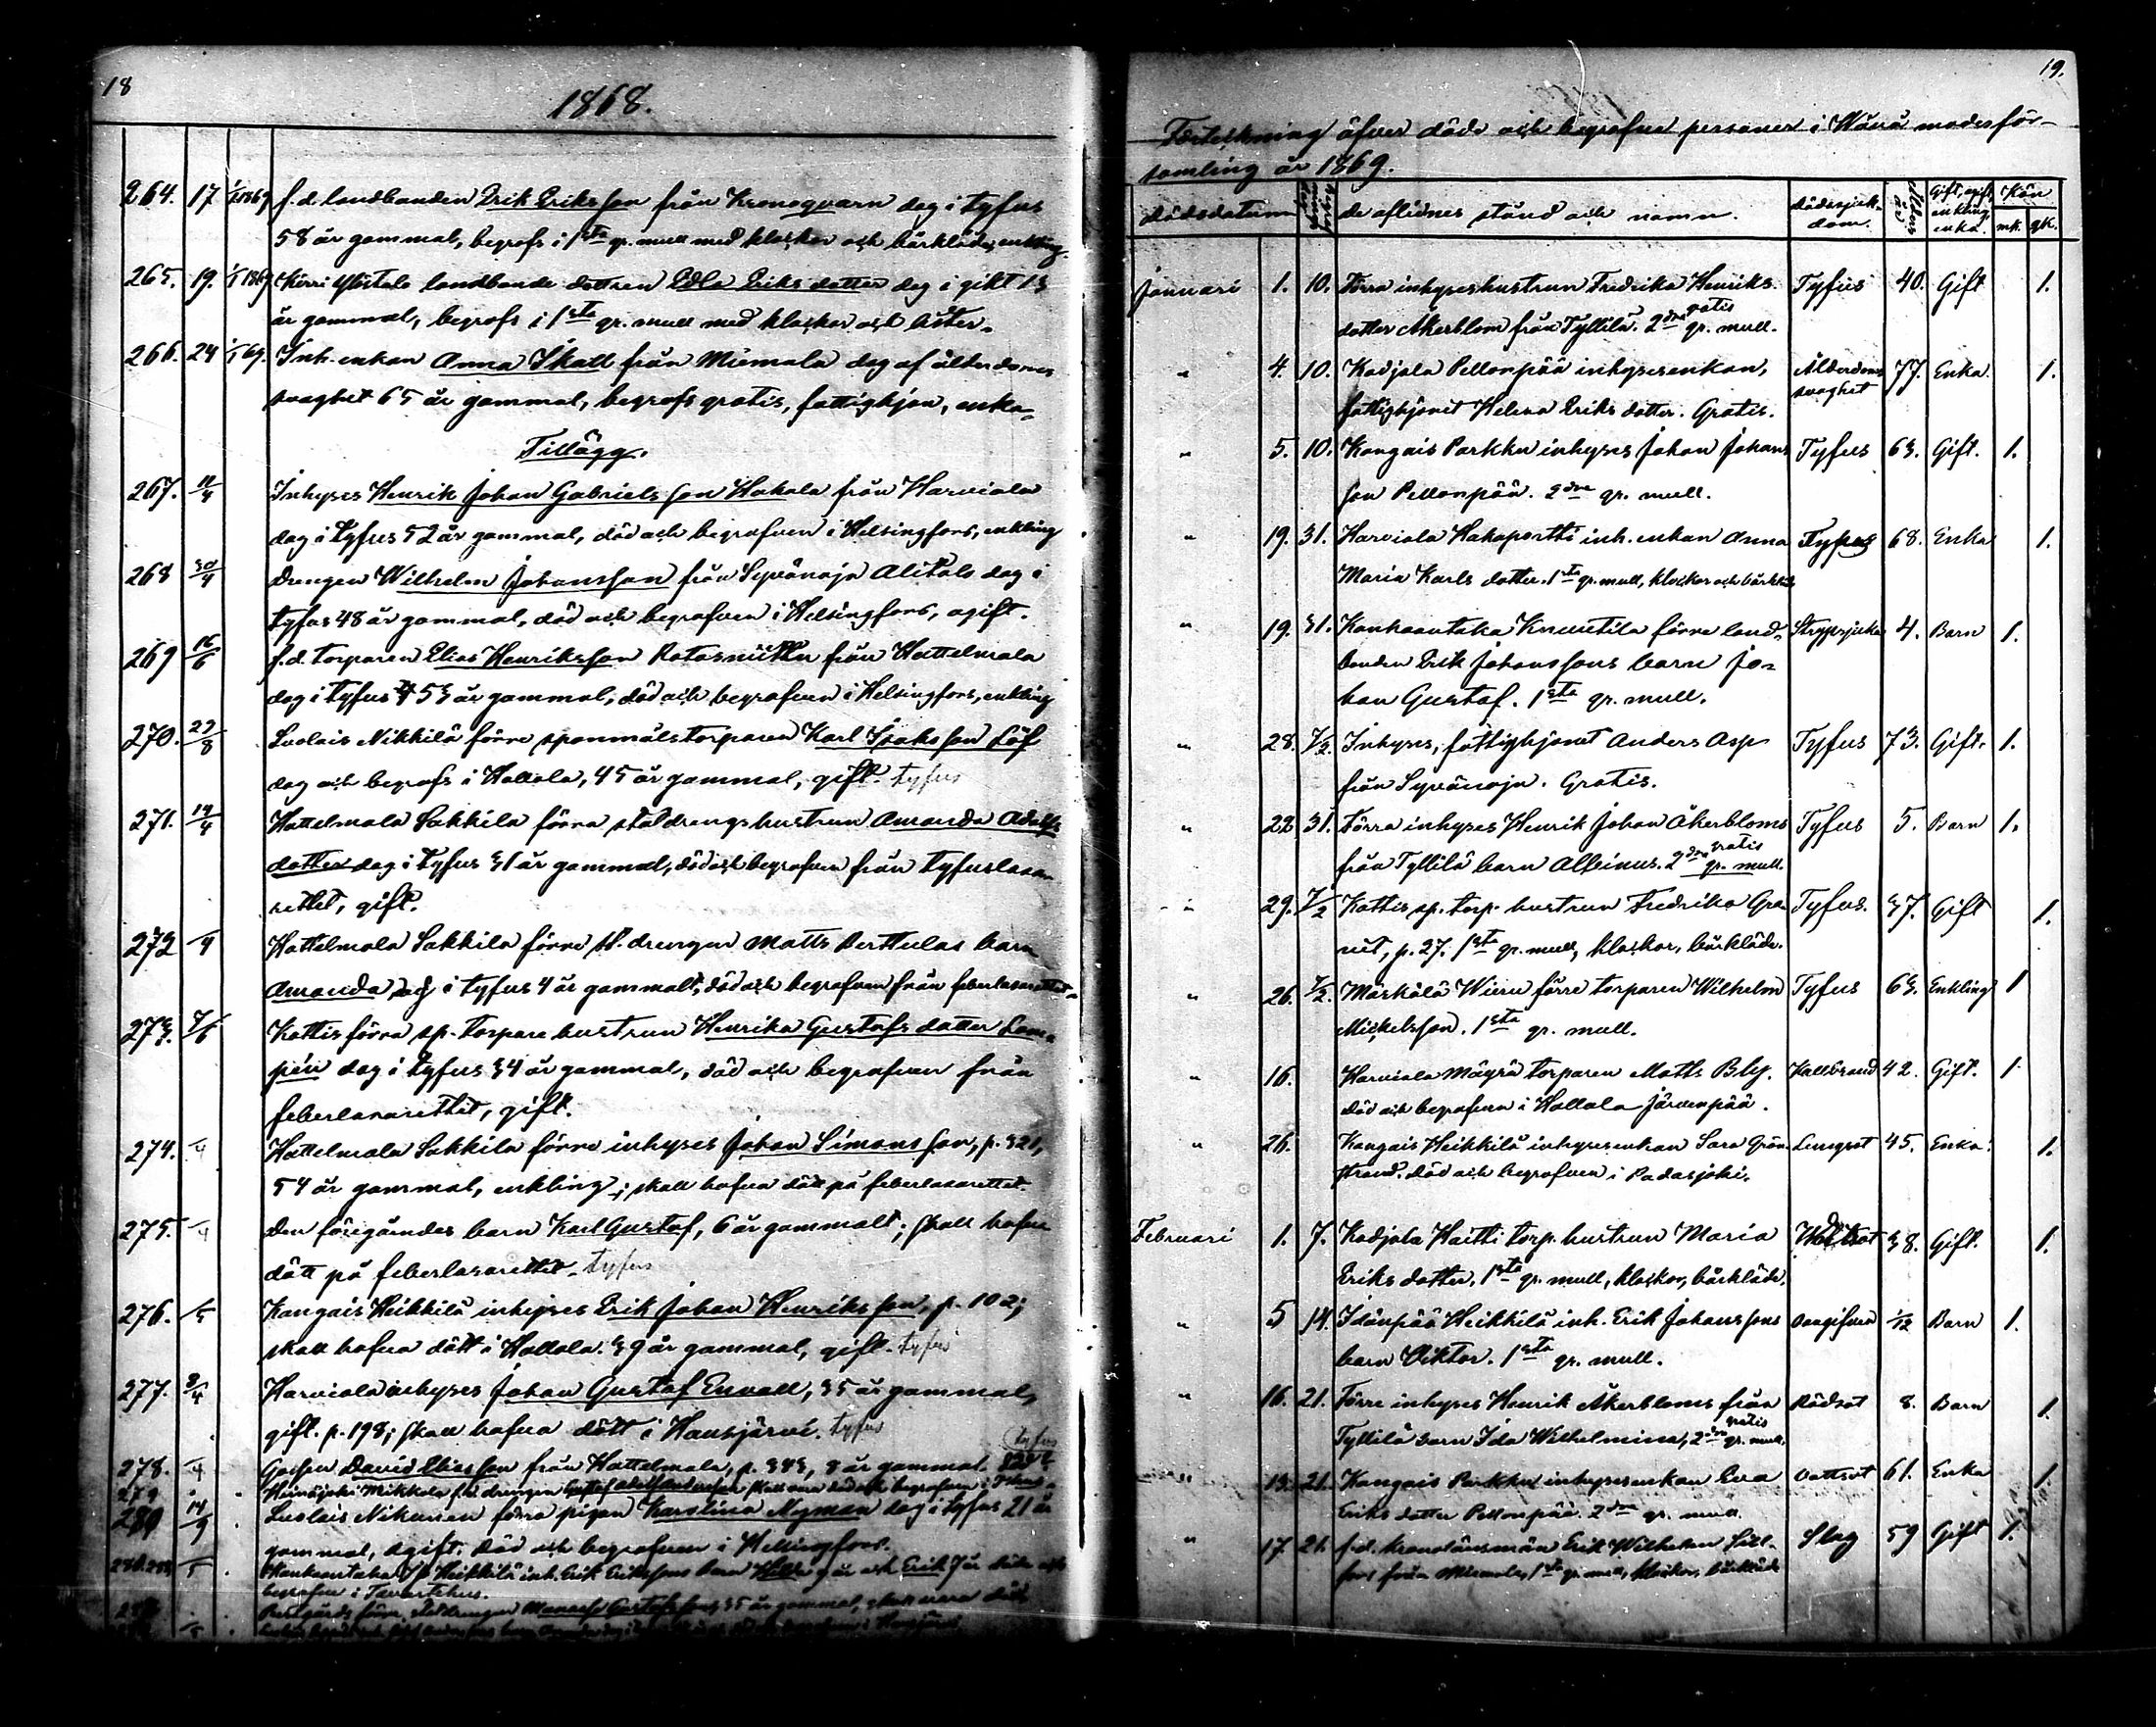 18
1868.
264. 17 1/1 1869 f. d. landbonden Erik Eriksson från Kronoqvarn dog i tyfus
58 år gammal, begrofs i 1sta gr. mull med klockor och bårkläde, enkling.
265. 19. 1/1 1869 landbonde dottren Edla Eriks dotter dog i gikt 13
år gammal, begrofs i 1sta gr. mull med klockor och
266. 24 1/1 69. Inh. enkan Anna Skall från Miemala dog af ålderdoms
svaghet 65 år gammal, begrofs gratis, fattighjon, enka.
Tillägg.
267. 11/4 Inhyses Henrik Johan Gabrielsson Hakala från Harviala
dog i tyfus 52 år gammal, död och begrafven i Helsingfors, enkling
268 30/4 Drengen Wilhelm Johansson från Syvänoja Alitalo dog i
tyfus 48 år gammal, död och begrafven i Helsingfors, ogift.
269 16/6 f. d. torparen Elias Henriksson från Hattelmala
dog i tyfus 53 år gammal, död och begrafven i Helsingfors, enkling
270. 27/8 Luolais Nikkilä förre spanmålstorparen Karl Isaksson Löf
dog och begrofs i Hollola, 45 år gammal, gift. tyfus
271. 14/4 Hattelmala Sakkila förra stoldrengs hustrun Amanda Adolfs
dotter dog i tyfus 31 år gammal, död och begrafven från tyfuslasa
rettet, gift.
272 /4 Hattelmala Sakkila förre st. drengen Matts Berttulas barn
Amanda, dog i tyfus 4 år gammalt, död och begrafven från feberlasarettet.
273. 7/6 Kattis förra sp. torpare hustrun Henrika Gustafs dotter Lam-
pén dog i tyfus 34 år gammal, död och begrafven från
feberlasarettet, gift.
274. /4 Hattelmala Sakkila förre inhyses Johan Simonsson, p. 321,
54 år gammal, enkling; skall hafva dött på feberlasarettet.
275. /4 Den föregåendes barn Karl Gustaf, 6 år gammalt; skall hafva
dött på feberlasarettet. tyfus
276. /5 Kangais Heikkilä inhyses Erik Johan Henriksson, p. 102;
skall hafva dött i Hollola. 39 år gammal, gift. tyfus
277. 8/4 Harviala inhyses Johan Gustaf Envall, 35 år gammal,
gift. p. 198; skall hafva dött i Hausjärvi. tyfus
278. /4 Gossen David Eliasson från Hattelmala, p. 343, 8 år gammal. tyfus
279 Heinäjoki Mikkola f. d. drengen Gustaf skall vara död och begrafven i
280 14/9 Luolais Nikunen förra pigan Karolina Nyman dog i tyfus 21 år
gammal, ogift. död och begrafven i Helsingfors.
/5 Kankaantaka Heikkilä inh. Erik Erikssons barn 9 år och Erik 7 år döda och
begrafna i Tavastehus.
förre stoldrengen Gustafsson 35 år gammal, skall vara död
19.
Förteckning öfver döde och begrafne personer i Wånå moderför-
samling år 1869.
Dödsdatum de aflidnes stånd och namn. Dödssjuk-dom. Ålders år Gift, ogift, enkling, enka. Kön mk. qk.
Januari 1. 10. Förra inhyseshustrun Fredrika Henriks Tyfus 40. Gift 1.
dotter Åkerblom från Tyllilä. 2dra gr. mull. gratis
" 4. 10. Kadjala Pellonpää inhysesenkan, Ålderdoms svaghet 77. Enka. 1.
fattighjonet Helena Eriks dotter. Gratis.
" 5. 10. Kangais Parkku inhyses Johan Johans Tyfus 63. Gift. 1.
son Pellonpää. 2dra gr. mull.
" 19. 31. Harviala Hakaportti inh. enkan Anna Tyfus 68. Enka 1.
Maria Karls dotter. 1sta gr. mull, klockor och bårkläde
" 19. 31. Kankaantaka Knuutila förre land- Strypsjuka 4. Barn 1.
bonden Erik Johanssons barn Jo-
han Gustaf. 1sta gr. mull.
" 28. 7/2. Inhyses, fattighjonet Anders Asp Tyfus 73. Gift. 1.
från Syvänoja. Gratis.
" 22 31. Förra inhyses Henrik Johan Åkerbloms Tyfus 5. Barn 1.
från Tyllilä barn Albinus. 2dra gr. mull. gratis
" 29. 7/2 Kattis sp. torp. hustrun Fredrika Gra- Tyfus. 37. Gift 1.
nit, p. 27. 1sta gr. mull, klockor, bårkläde.
" 26. 7/2. Mäskälä Wieru förre torparen Wilhelm Tyfus 63. Enkling 1
Mickelsson. 1sta gr. mull.
" 16. Harviala Mäyrä torparen Matts Bly. Kallbrand 42. Gift. 1.
död och begrafven i Hollola Järvenpää.
" 26. Kangais Heikkilä inhysesenkan Sara Grön- Lungsot 45. Enka. 1.
strand. död och begrafven i Padasjoki.
Februari 1. 7. Kadjala Haitti torp. hustrun Maria 38. Gift. 1.
Eriks dotter, 1sta gr. mull, klockor, bårkläde.
" 5 14. Idänpää Heikkilä inh. Erik Johanssons oangifven 1/12 Barn 1.
barn Viktor. 1sta gr. mull.
" 16. 21. Förre inhyses Henrik Åkerbloms från Rödsot 8. Barn 1.
Tyllilä barn Ida Wilhelmina, 2dra gr. mull. gratis
" 13. 21. Kangais Parkku inhysesenkan Eva Vattsot 61. Enka 1.
Eriks dotter Pellonpää. 2dra gr. mull.
" 17. 21. f. d. kronolänsman Erik Wilhelm Slag 59 Gift 1.
från Miemala, 1sta gr. mull, klockor, bårkläde